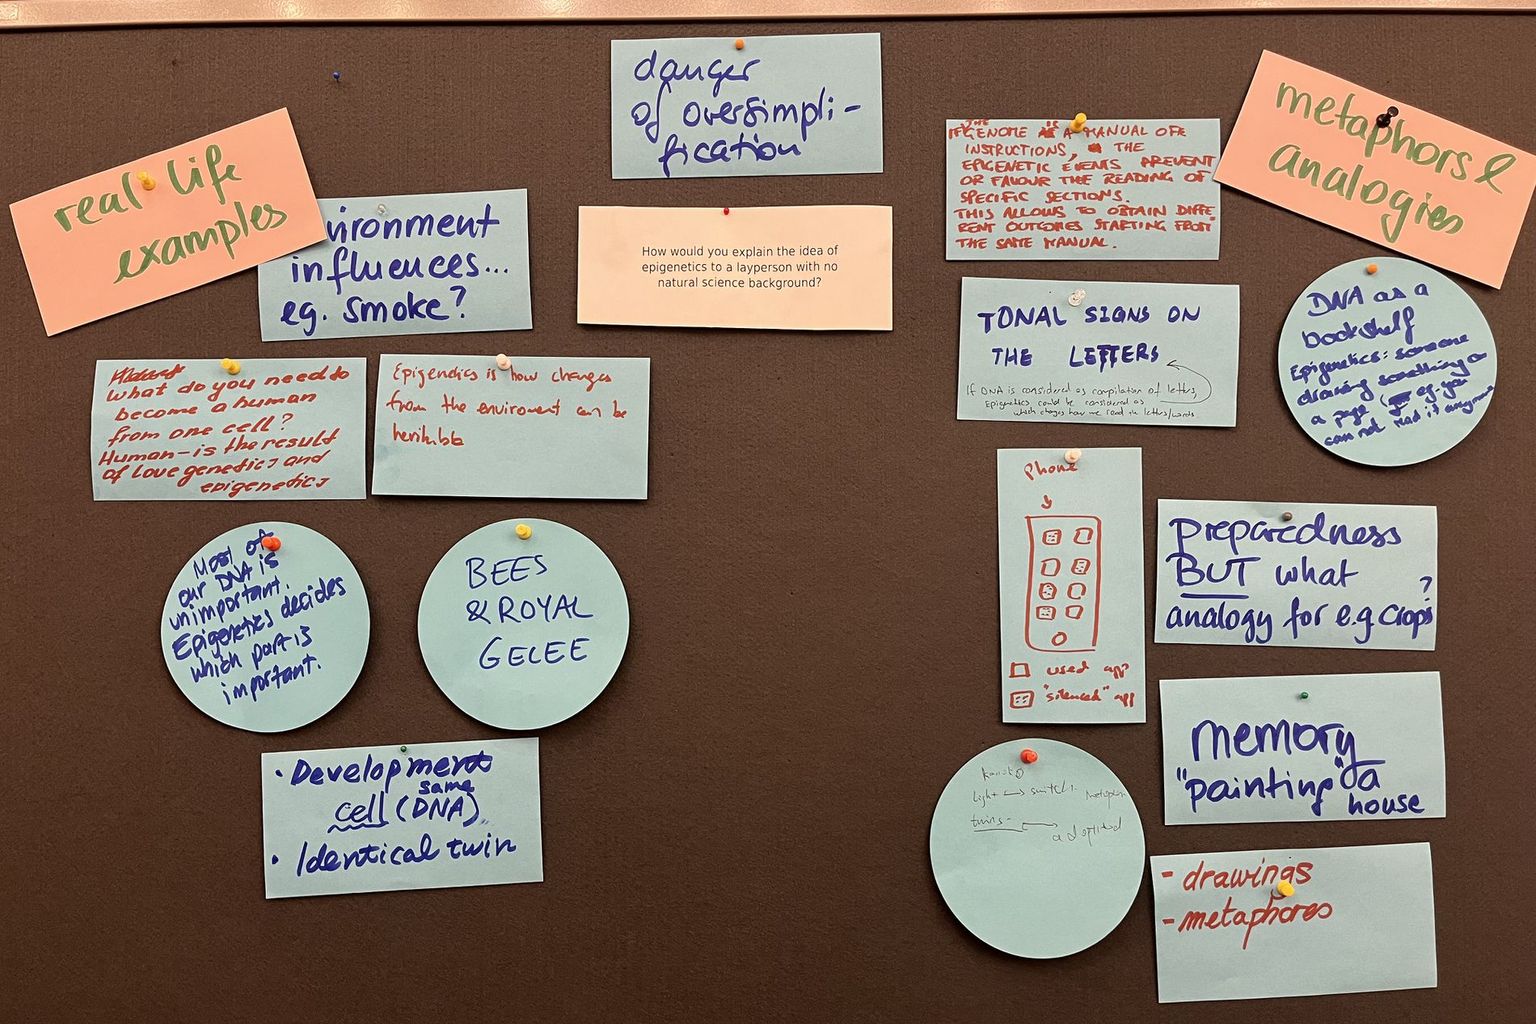 danger
of oversimpli-
fication
How would you explain the idea of
epigenetics to a layperson with no
natural science background?
real life
examples
vironment
influences...
eg. smoke?
what do you need to
become a human
from one cell?
Human - is the result
of love genetics and
epigenetics
Epigenetics is how changes
from the enviroment can be
Most of
our DNA is
unimportant.
Epigenetics decides
which part is
important.
BEES
& ROYAL
GELEE
• Development
same
cell (DNA)
• Identical twin
metaphors &
analogies
THE
IF GENOME IS A MANUAL OF
INSTRUCTIONS, THE
EPIGENETIC EVENTS PREVENT
OR FAVOUR THE READING OF
SPECIFIC SECTIONS.
THIS ALLOWS TO OBTAIN DIFFE
RENT OUTCOMES STARTING FROM
THE SAME MANUAL.
TONAL SIGNS ON
THE LETTERS
If DNA is considered as compilation of letters,
Epigenetics could be considered as
which changes how we read the letters/words
DNA as a
bookshelf
Epigenetics: someone
drawing something on
a page eg. you
can not read it anymore
phone
used app
"silenced" app
preparedness
BUT what
analogy for e.g crops?
memory
"painting" a
house
light switch
twins
- drawings
- metaphores